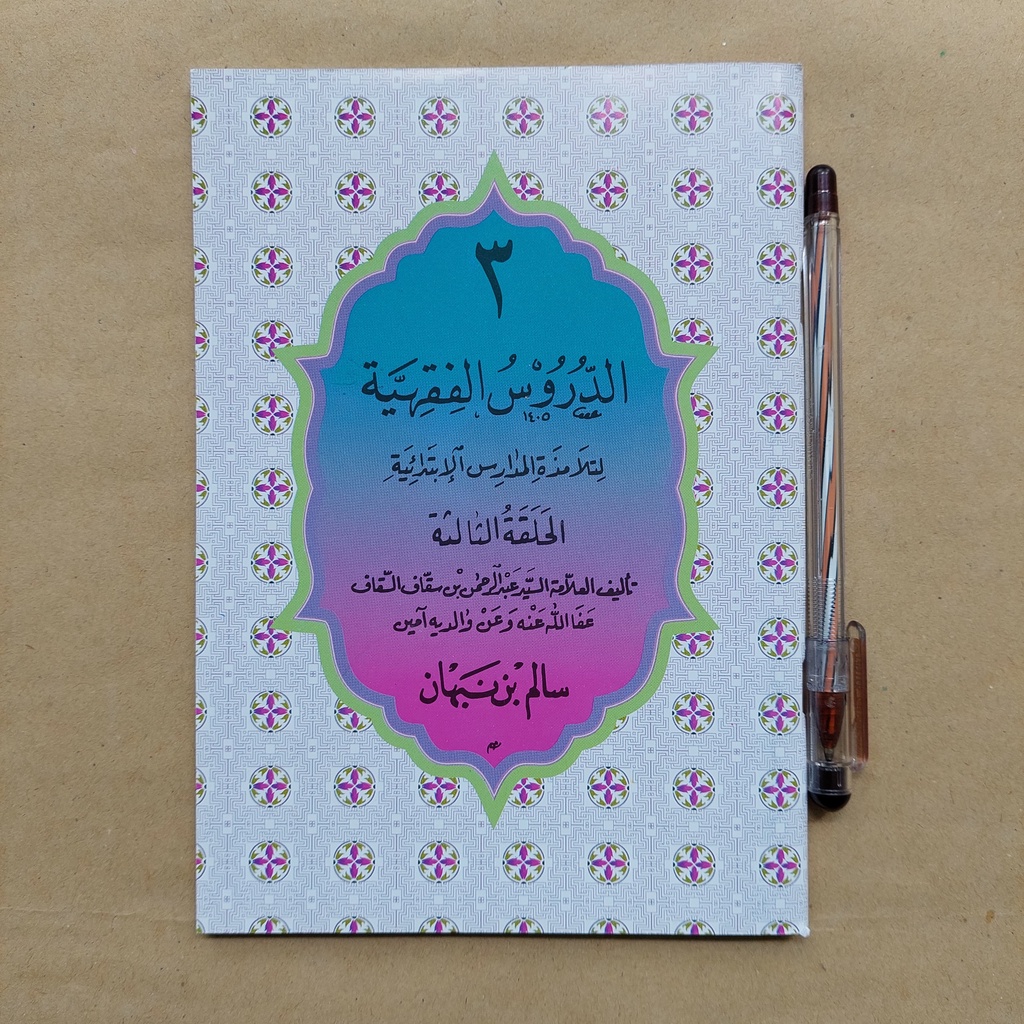 ٣
الدُّرُوْسُ الفِقْهِيَّة
١٤٠٥
لِتَلَامِذَةِ المَدَارِس الإِبْتَدَائِيَّةِ
الحَلَقَةُ الثَّالِثَة
تأليف العلّامة السَّيِّد عَبْد الرَّحمٰن بْن سقّاف السّقاف
عَفَا اللّٰه عَنْه وَعَنْ وَالديه آمين
سالم بْن نَبْهَان